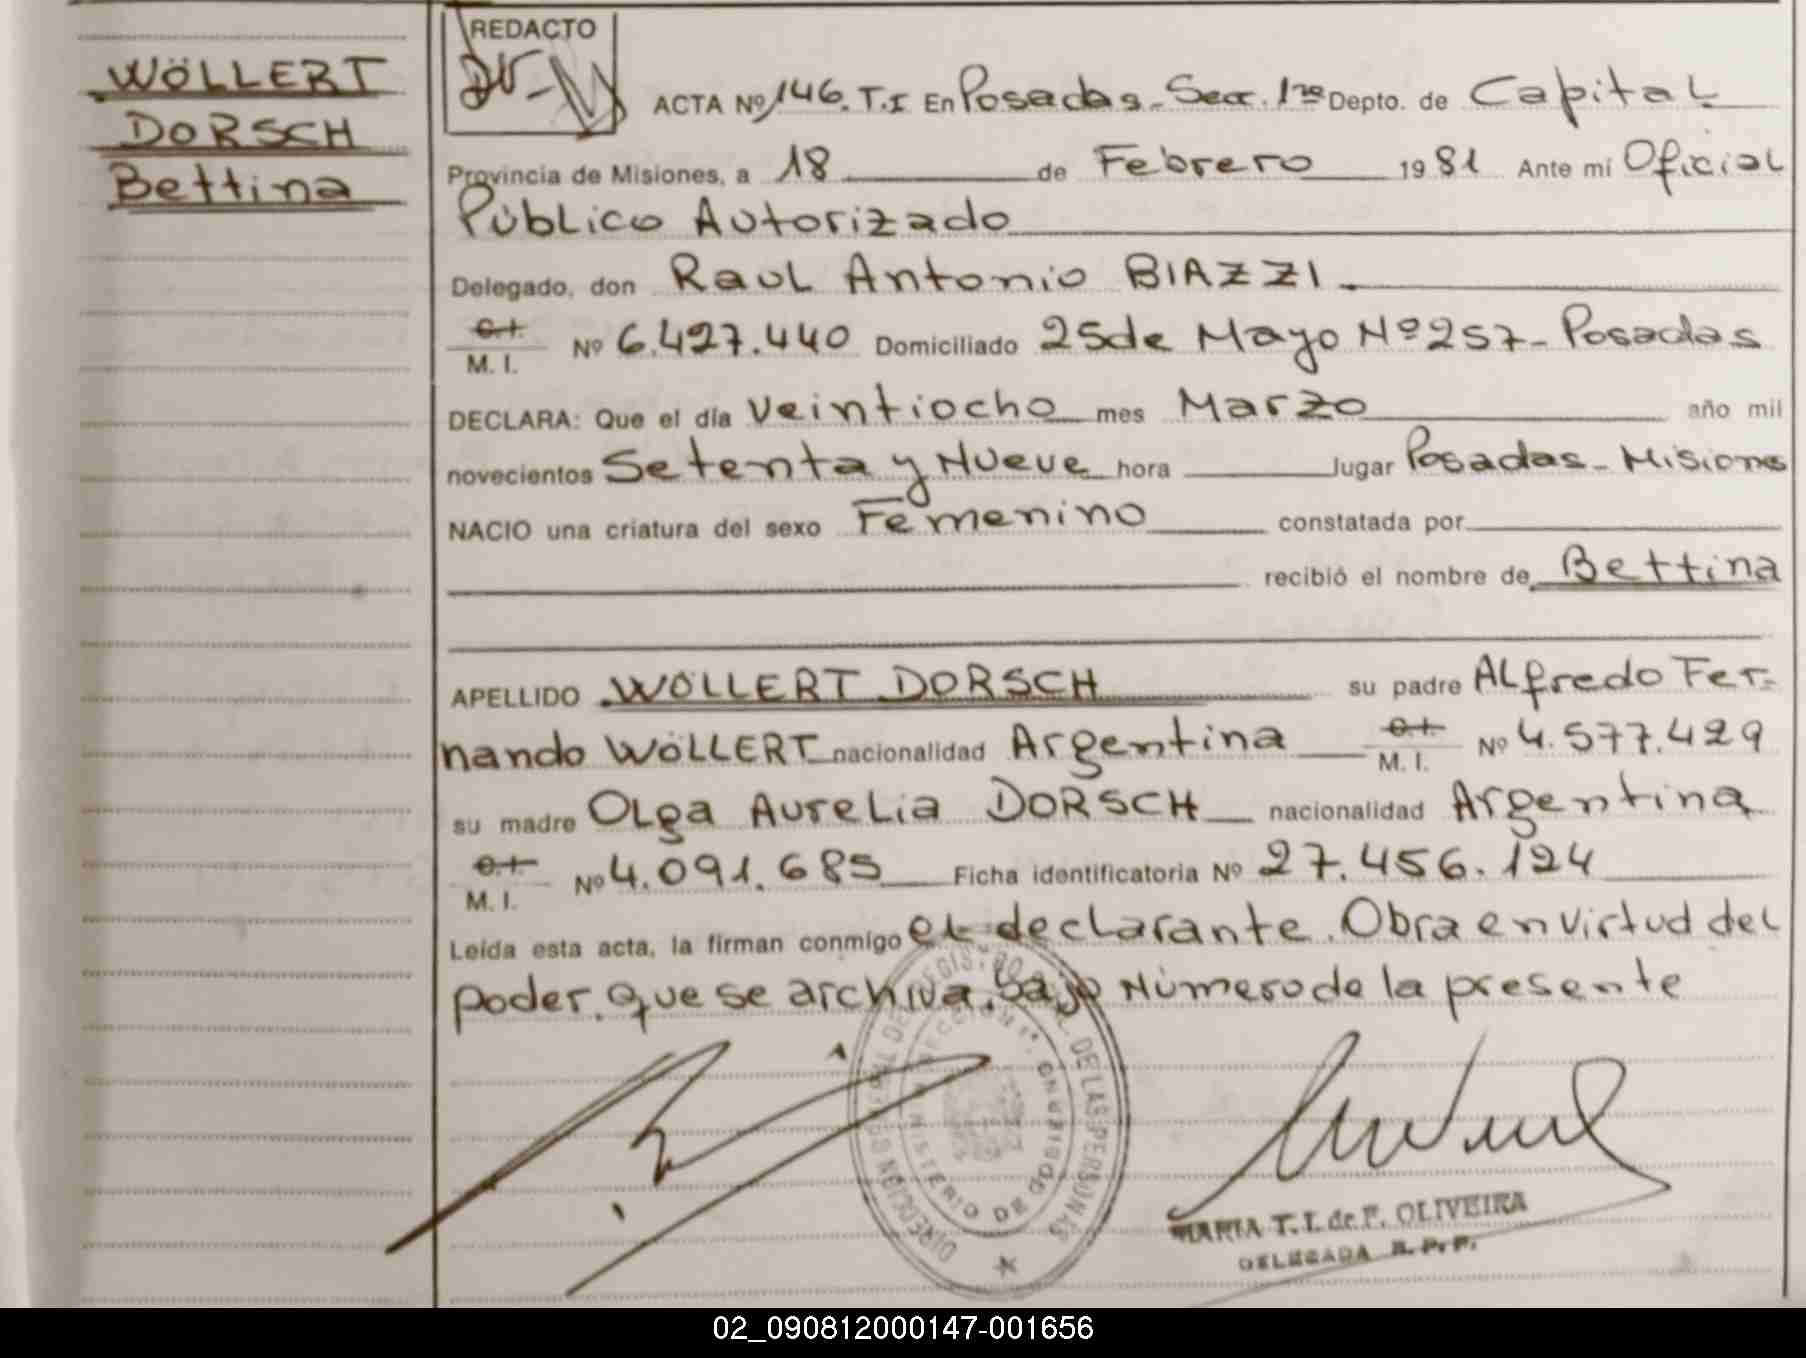 WÖLLERT
DORSCH
Bettina
REDACTO
ACTA Nº 146. T.I En Posadas - Secc. 1ra Depto. de Capital
Provincia de Misiones, a 18 de Febrero 1981 Ante mí Oficial
Público Autorizado
Delegado, don Raul Antonio BIAZZI.
C.I.
M. I. Nº 6.427.440 Domiciliado 25 de Mayo Nº 257 - Posadas
DECLARA: Que el día Veintiocho mes Marzo año mil
novecientos Setenta y Nueve hora lugar Posadas - Misiones
NACIO una criatura del sexo Femenino constatada por
recibió el nombre de Bettina
APELLIDO WÖLLERT DORSCH su padre Alfredo Fer-
nando WÖLLERT nacionalidad Argentina C.I.
M. I. Nº 4.577.429
su madre Olga Aurelia DORSCH nacionalidad Argentina
C.I.
M. I. Nº 4.091.685 Ficha identificatoria Nº 27.456.124
Leída esta acta, la firman conmigo el declarante. Obra en virtud del
poder. que se archiva. bajo Número de la presente
DIRECCION GRAL DEL REGISTRO DE LAS PERSONAS
MINISTERIO DE GOBIERNO
MARIA T. I. de F. OLIVEIRA
DELEGADA R. P. P.
02_090812000147-001656